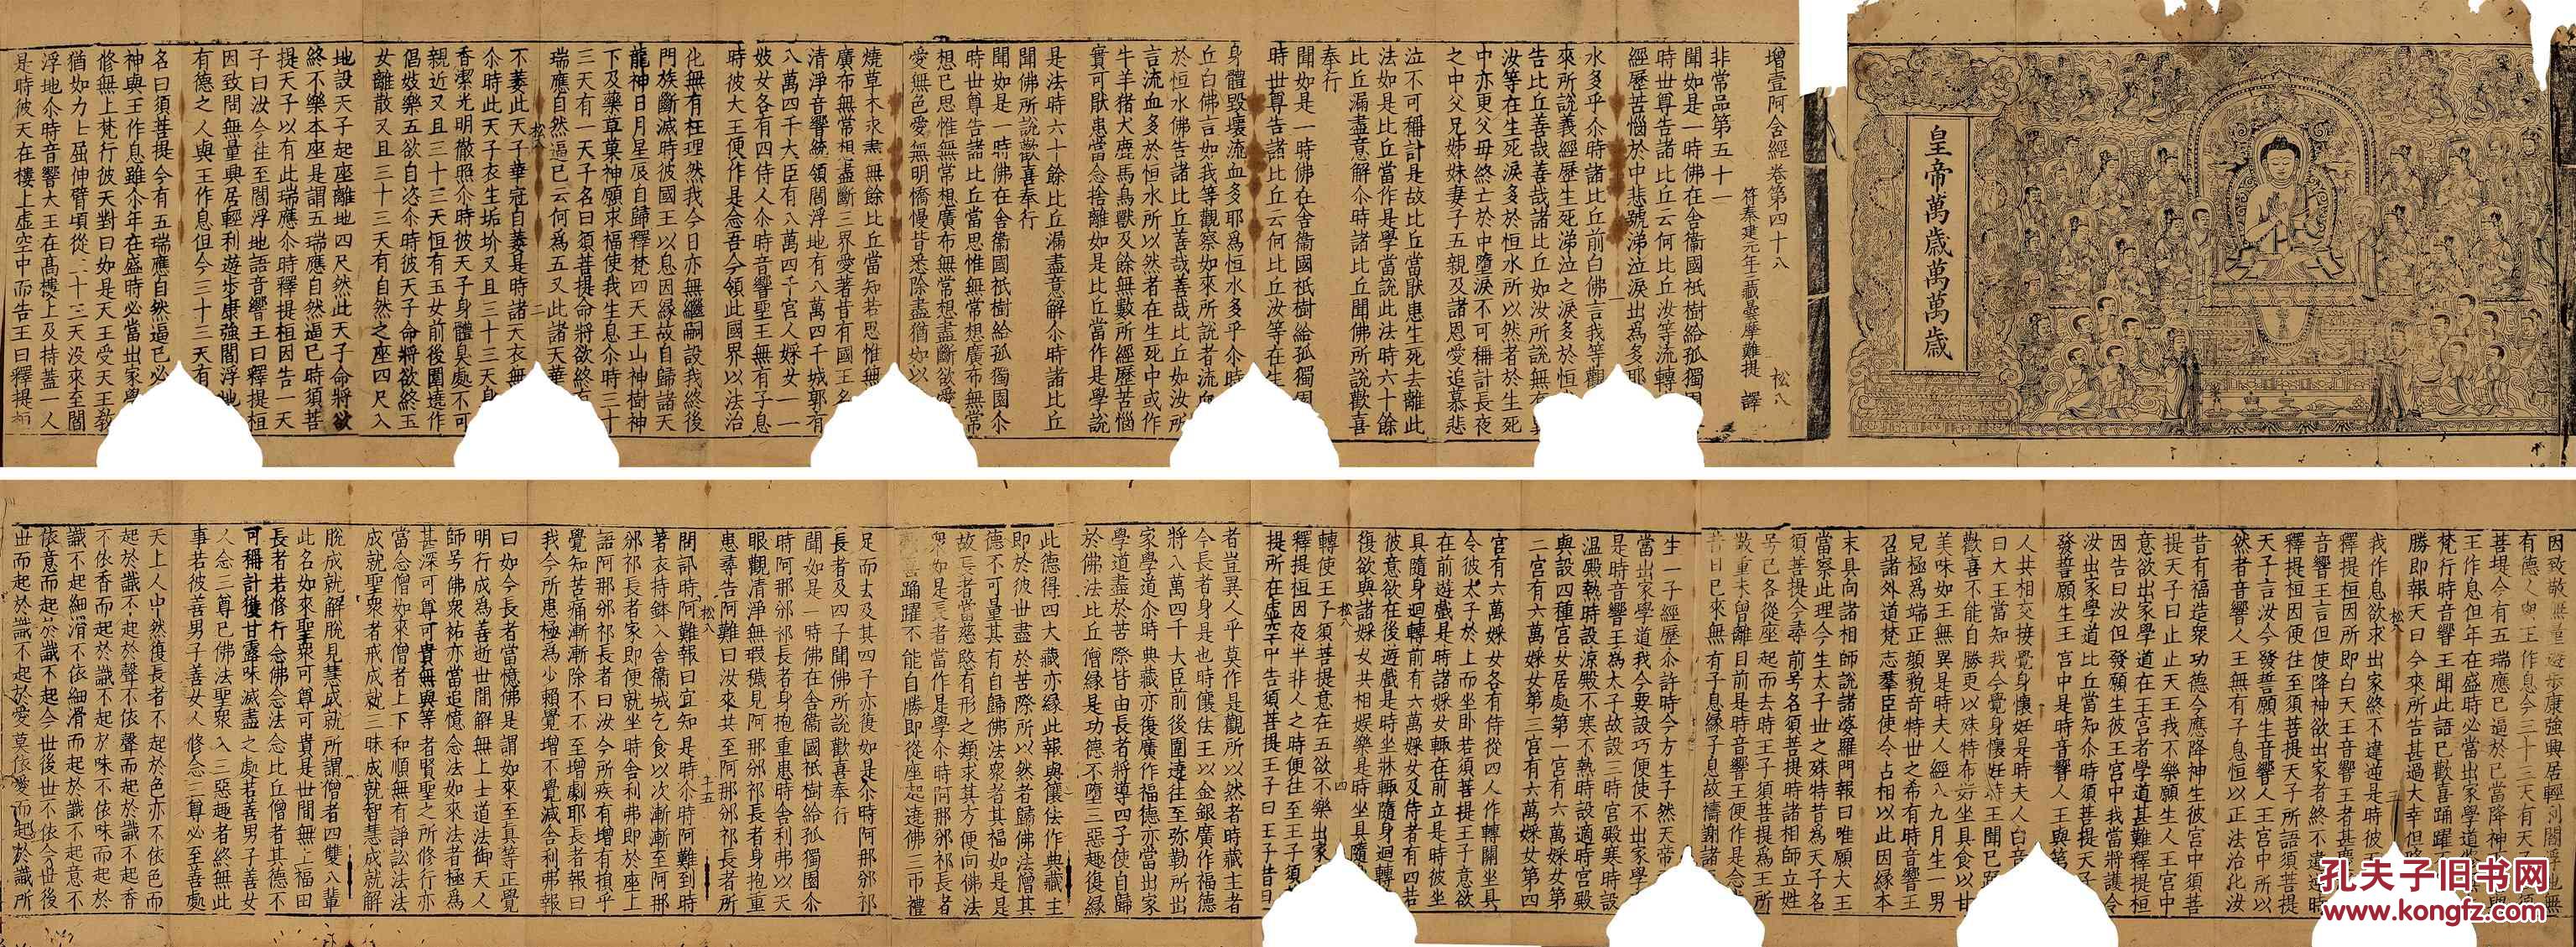 皇帝萬歲萬萬歲
增壹阿含經卷第四十八 松八
符秦建元年三藏曇摩難提 譯
非常品第五十一
聞如是一時佛在舍衛國祇樹給孤獨園
時世尊告諸比丘云何比丘汝等流轉
經歷苦惱於中悲號涕泣淚出為多耶
水多乎尒時諸比丘前白佛言我等觀
來所說義經歷生死涕泣之淚多於恒
告比丘善哉善哉諸比丘如汝所說無有
汝等在生死淚多於恒水所以然者於生死
中亦更父母終亡於中墮淚不可稱計長夜
之中父兄姊妹妻子五親及諸恩愛追慕悲
泣不可稱計是故比丘當猒患生死去離此
法如是比丘當作是學當說此法時六十餘
比丘漏盡意解尒時諸比丘聞佛所說歡喜
奉行
聞如是一時佛在舍衛國祇樹給孤獨園
時世尊告諸比丘云何比丘汝等在生
身體毀壞流血多耶為恒水多乎尒時
丘白佛言如我等觀察如來所說者流血
於恒水佛告諸比丘善哉善哉比丘如汝所
言流血多於恒水所以然者在生死中或作
牛羊猪犬鹿馬鳥獸及餘無數所經歷苦惱
實可猒患當念捨離如是比丘當作是學說
是法時六十餘比丘漏盡意解尒時諸比丘
聞佛所說歡喜奉行
聞如是一時佛在舍衛國祇樹給孤獨園尒
時世尊告諸比丘當思惟無常想廣布無常
想已思惟無常想廣布無常想盡斷欲愛
愛無色愛無明憍慢甘悉除盡猶如以
燒草木永盡無餘比丘當知若思惟無
廣布無常想盡斷三界愛著昔有國王名
清淨音響統領閻浮地有八萬四千城郭有
八萬四千大臣有八萬四千宮人婇女一一
妓女各有四侍人尒時音響聖王無有子息
時彼大王便作是念吾今領此國界以法治
化無有枉理然我今日亦無繼嗣設我終後
門族斷滅時彼國王以息因緣故自歸諸天
龍神日月星辰自歸釋梵四天王山神樹神
下及藥草菓神願求福使我生息尒時三十
三天有一天子名曰須菩提命將欲終有
瑞應自然逼已云何為五又此諸天華
不萎此天子華冠自萎是時諸天衣無
尒時此天子衣生垢坋又且三十三天身
香潔光明徹照尒時彼天子身體臭處不可
親近又且三十三天恒有玉女前後圍遶作
倡妓樂五欲自恣尒時彼天子命將欲終玉
女離散又且三十三天有自然之座四尺入
地設天子起座離地四尺然此天子命將欲
終不樂本座是謂五瑞應自然逼已時須菩
提天子以有此瑞應尒時釋提桓因告一天
子曰汝今往至閻浮地語音響王曰釋提桓
因致問無量興居輕利遊步康強閻浮地
有德之人與王作息但今三十三天有
名曰須菩提今有五瑞應自然逼已必
神與王作息雖尒年在盛時必當出家學
修無上梵行彼天對曰如是天王受天王教
猶如力士屈伸臂頃從三十三天沒來至閻
浮地尒時音響大王在高樓上及持蓋一人
是時彼天在樓上虛空中而告王曰釋提桓
因致敬無量遊步康強興居輕利閻浮地無
有德人與王作息今三十三天有天子名須
菩提今有五瑞應已逼於已當降神與
王作息但年在盛時必當出家學道修
梵行時音響王聞此語已歡喜踊躍不
勝即報天曰今來所告甚過大幸但
我作息欲求出家終不違逆是時彼
釋提桓因所即白天王音響王者甚
音響王言但使降神欲出家者終不違逆時
釋提桓因便往至須菩提天子所語須菩提
天子言汝今發誓願生音響人王宮中所以
然者音響人王無有子息恒以正法治化汝
昔有福造眾功德今應降神生彼宮中須菩
提天子曰止止天王我不樂願生人王宮中
意欲出家學道在王宮者學道甚難釋提桓
因告曰汝但發願生彼王宮中我當將護令
汝出家學道比丘當知尒時須菩提天子
發誓願生王宮中是時音響人王與第
人共相交接覺身懷妊是時夫人白音
曰大王當知我今覺身懷妊時王聞已
歡喜不能自勝更以殊特布好坐具食以甘
美味如王無異是時夫人經八九月生一男
兒極為端正顏貌奇特世之希有時音響王
召諸外道梵志羣臣使令占相以此因緣本
末具向諸相師說諸婆羅門報曰唯願大王
當察此理今生太子世之殊特昔為天子名
須菩提今尋前号名須菩提時諸相師立姓
号已各從座起而去時王子須菩提為王所
敬重未曾離目前是時音響王便作是念
昔日已來無有子息緣子息故禱謝諸
生一子經歷尒許時今方生子然天帝
當出家學道我今要設巧便使不出家學
是時音響王為太子故設三時宮殿寒時設
溫殿熱時設涼殿不寒不熱時設適時宮殿
與設四種宮女居處第一宮有六萬婇女第
二宮有六萬婇女第三宮有六萬婇女第四
宮有六萬婇女各有侍從四人作轉關坐具
令彼太子於上而坐卧若須菩提王子意欲
在前遊戲是時諸婇女輒在前立是時彼坐
具隨身迴轉前有六萬婇女及侍者有四若
彼意欲在後遊戲是時坐牀輒隨身迴轉
復欲與諸婇女共相娛樂是時坐具隨
轉使王子須菩提意在五欲不樂出家
釋提桓因夜半非人之時便往至王子須
提所在虛空中告須菩提王子曰王子昔日
者豈異人乎莫作是觀所以然者時藏主者
今長者身是也時儴佉王以金銀廣作福德
將八萬四千大臣前後圍遶往至弥勒所出
家學道尒時典藏亦復廣作福德亦當出家
學道盡於苦際皆由長者將導四子使自歸
於佛法比丘僧緣是功德不墮三惡趣復緣
此德得四大藏亦緣此報與儴佉作典藏主
即於彼世盡於苦際所以然者歸佛法僧其
德不可量其有自歸佛法眾者其福如是是
故長者當慈愍有形之類求其方便向佛法
眾如是長者當作是學尒時阿那邠祁長者
歡喜踊躍不能自勝即從座起遶佛三帀禮
足而去及其四子亦復如是尒時阿那邠祁
長者及四子聞佛所說歡喜奉行
聞如是一時佛在舍衛國祇樹給孤獨園尒
時阿那邠祁長者身抱重患時舍利弗以天
眼觀清淨無瑕穢見阿那邠祁長者身抱重
患尋告阿難曰汝來共至阿那邠祁長者所
問訊時阿難報曰宜知是時尒時阿難到時
著衣持鉢入舍衛城乞食以次漸漸至阿那
邠祁長者家即便就坐時舍利弗即於座上
語阿那邠祁長者曰汝今所疾有增有損乎
覺知苦痛漸漸除不不至增劇耶長者報曰
我今所患極為少賴覺增不覺減舍利弗報
曰如今長者當憶佛是謂如來至真等正覺
明行成為善逝世間解無上士道法御天人
師号佛眾祐亦當追憶念法如來法者極為
甚深可尊可貴無與等者賢聖之所修行亦
當念僧如來僧者上下和順無有諍訟法法
成就聖眾者戒成就三昧成就智慧成就解
脫成就解脫見慧成就所謂僧者四雙八輩
此名如來聖眾可尊可貴是世間無上福田
長者若修行念佛念法念比丘僧者其德不
可稱計獲甘露味滅盡之處若善男子善女
人念三尊已佛法聖眾入三惡趣者終無此
事若彼善男子善女人修念三尊必至善處
天上人中然復長者不起於色亦不依色而
起於識不起於聲不依聲而起於識不起香
不依香而起於識不起於味不依味而起於
識不起細滑不依細滑而起於識不起意不
依意而起於識不起今世後世不依今世後
世而起於識不起於愛莫依愛而起於識所
孔夫子旧书网
www.kongfz.com